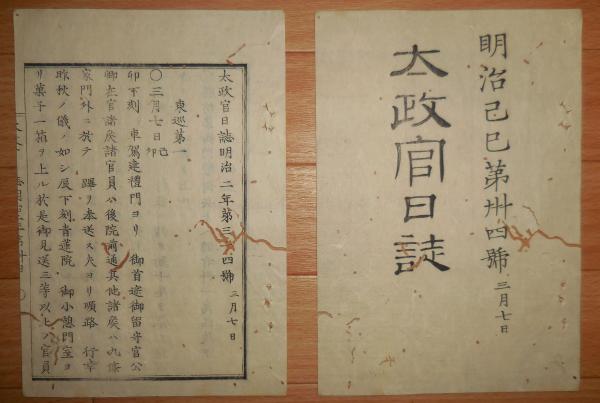 明治己巳第卅四號 三月七日
太政官日誌
太政官日誌明治二年第三十四號 三月七日
東巡第一
〇三月七日己卯
卯下刻 車駕建禮門ヨリ 御首途御留守官公
卿在官諸矦諸官員ハ後院前通其他諸矦ハ九條
家門外ニ於テ 蹕ヲ奉送ス夫ヨリ順路 行幸
昨秋ノ儀ノ如シ辰下刻青蓮院 御小憩門室ヨ
リ菓子一箱ヲ上ル於是御見送三等以上ノ官員